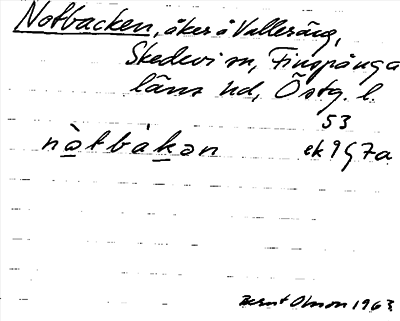 Notbacken, åker å Valleräng,
Skedevi sn, Finspånga
läns hd, Östg. l.
53
nòtbàkən ek 9 G 7a
Bernt Olsson 1963